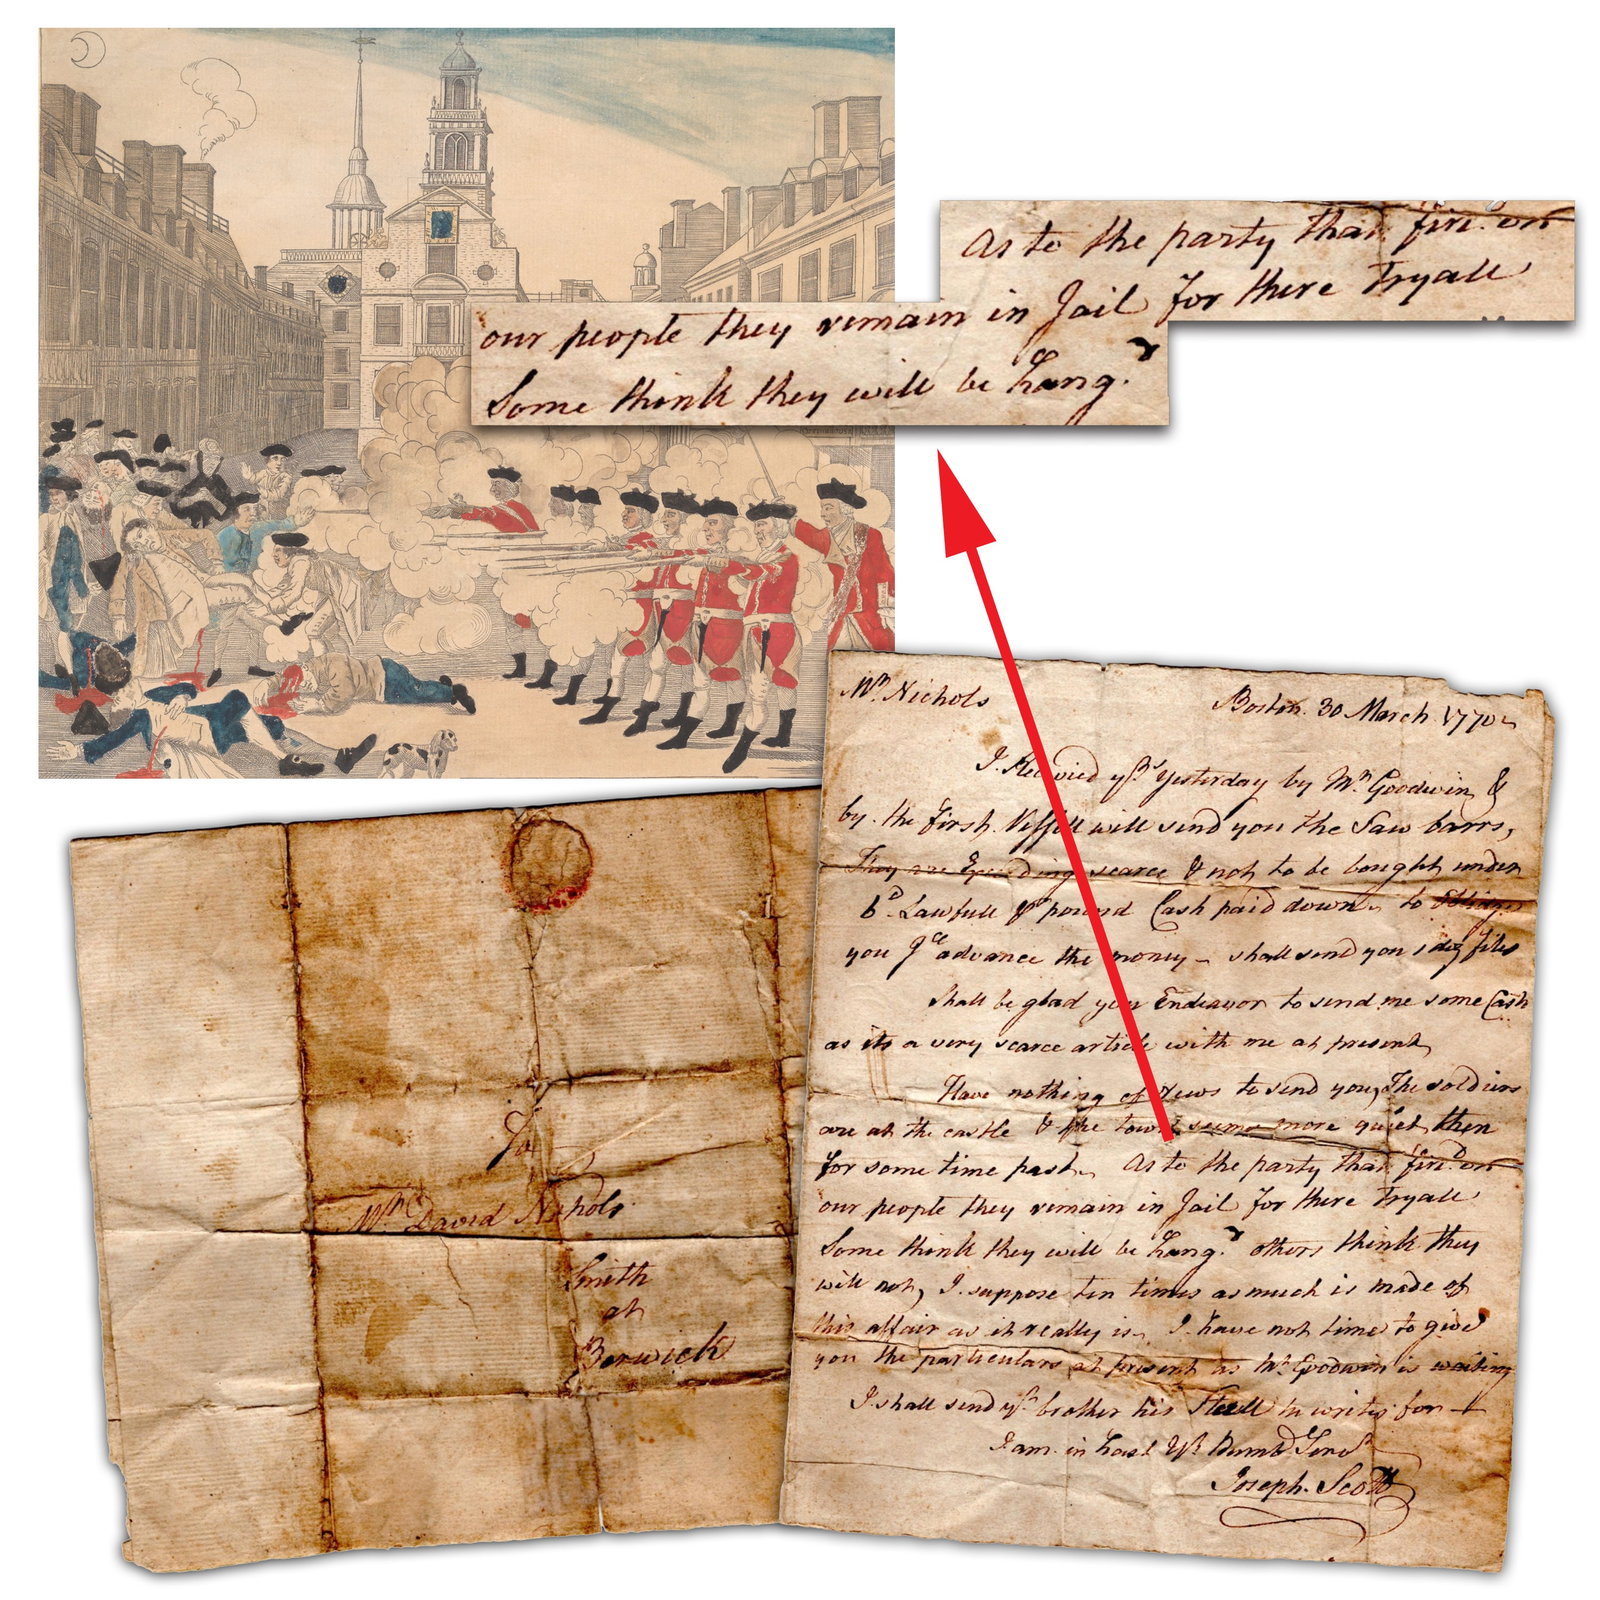 As to the party that fir'd on
our people they remain in Jail for there Tryall
Some think they will be hang'd
Mr. Nichols
Boston 30 March 1770
I Received yrs Yesterday by Mr. Goodwin &
by the first Vessell will send you the Saw barrs,
They are Exceeding scarce & not to be bought under
6d Lawfull pr pound Cash paid down to Obliage
you I advance the money - shall send you 1 doz files
Shall be glad you Endeavor to send me some Cash
as its a very scarce article with me at present,
Have nothing of News to send you, The soldiers
are at the castle & the town seems more quiet then
for some time past. As to the party that fir'd on
our people they remain in Jail for there Tryall
Some think they will be hang'd others think they
will not, I suppose ten times as much is made of
this affair as it really is. I have not time to give
you the particulars at present as Mr. Goodwin is waiting
I shall send yr brother his Steell he writes for
I am in hast Yr Humb Serv
Joseph Scott
To
Mr. David Nichols
Smith
at
Berwick